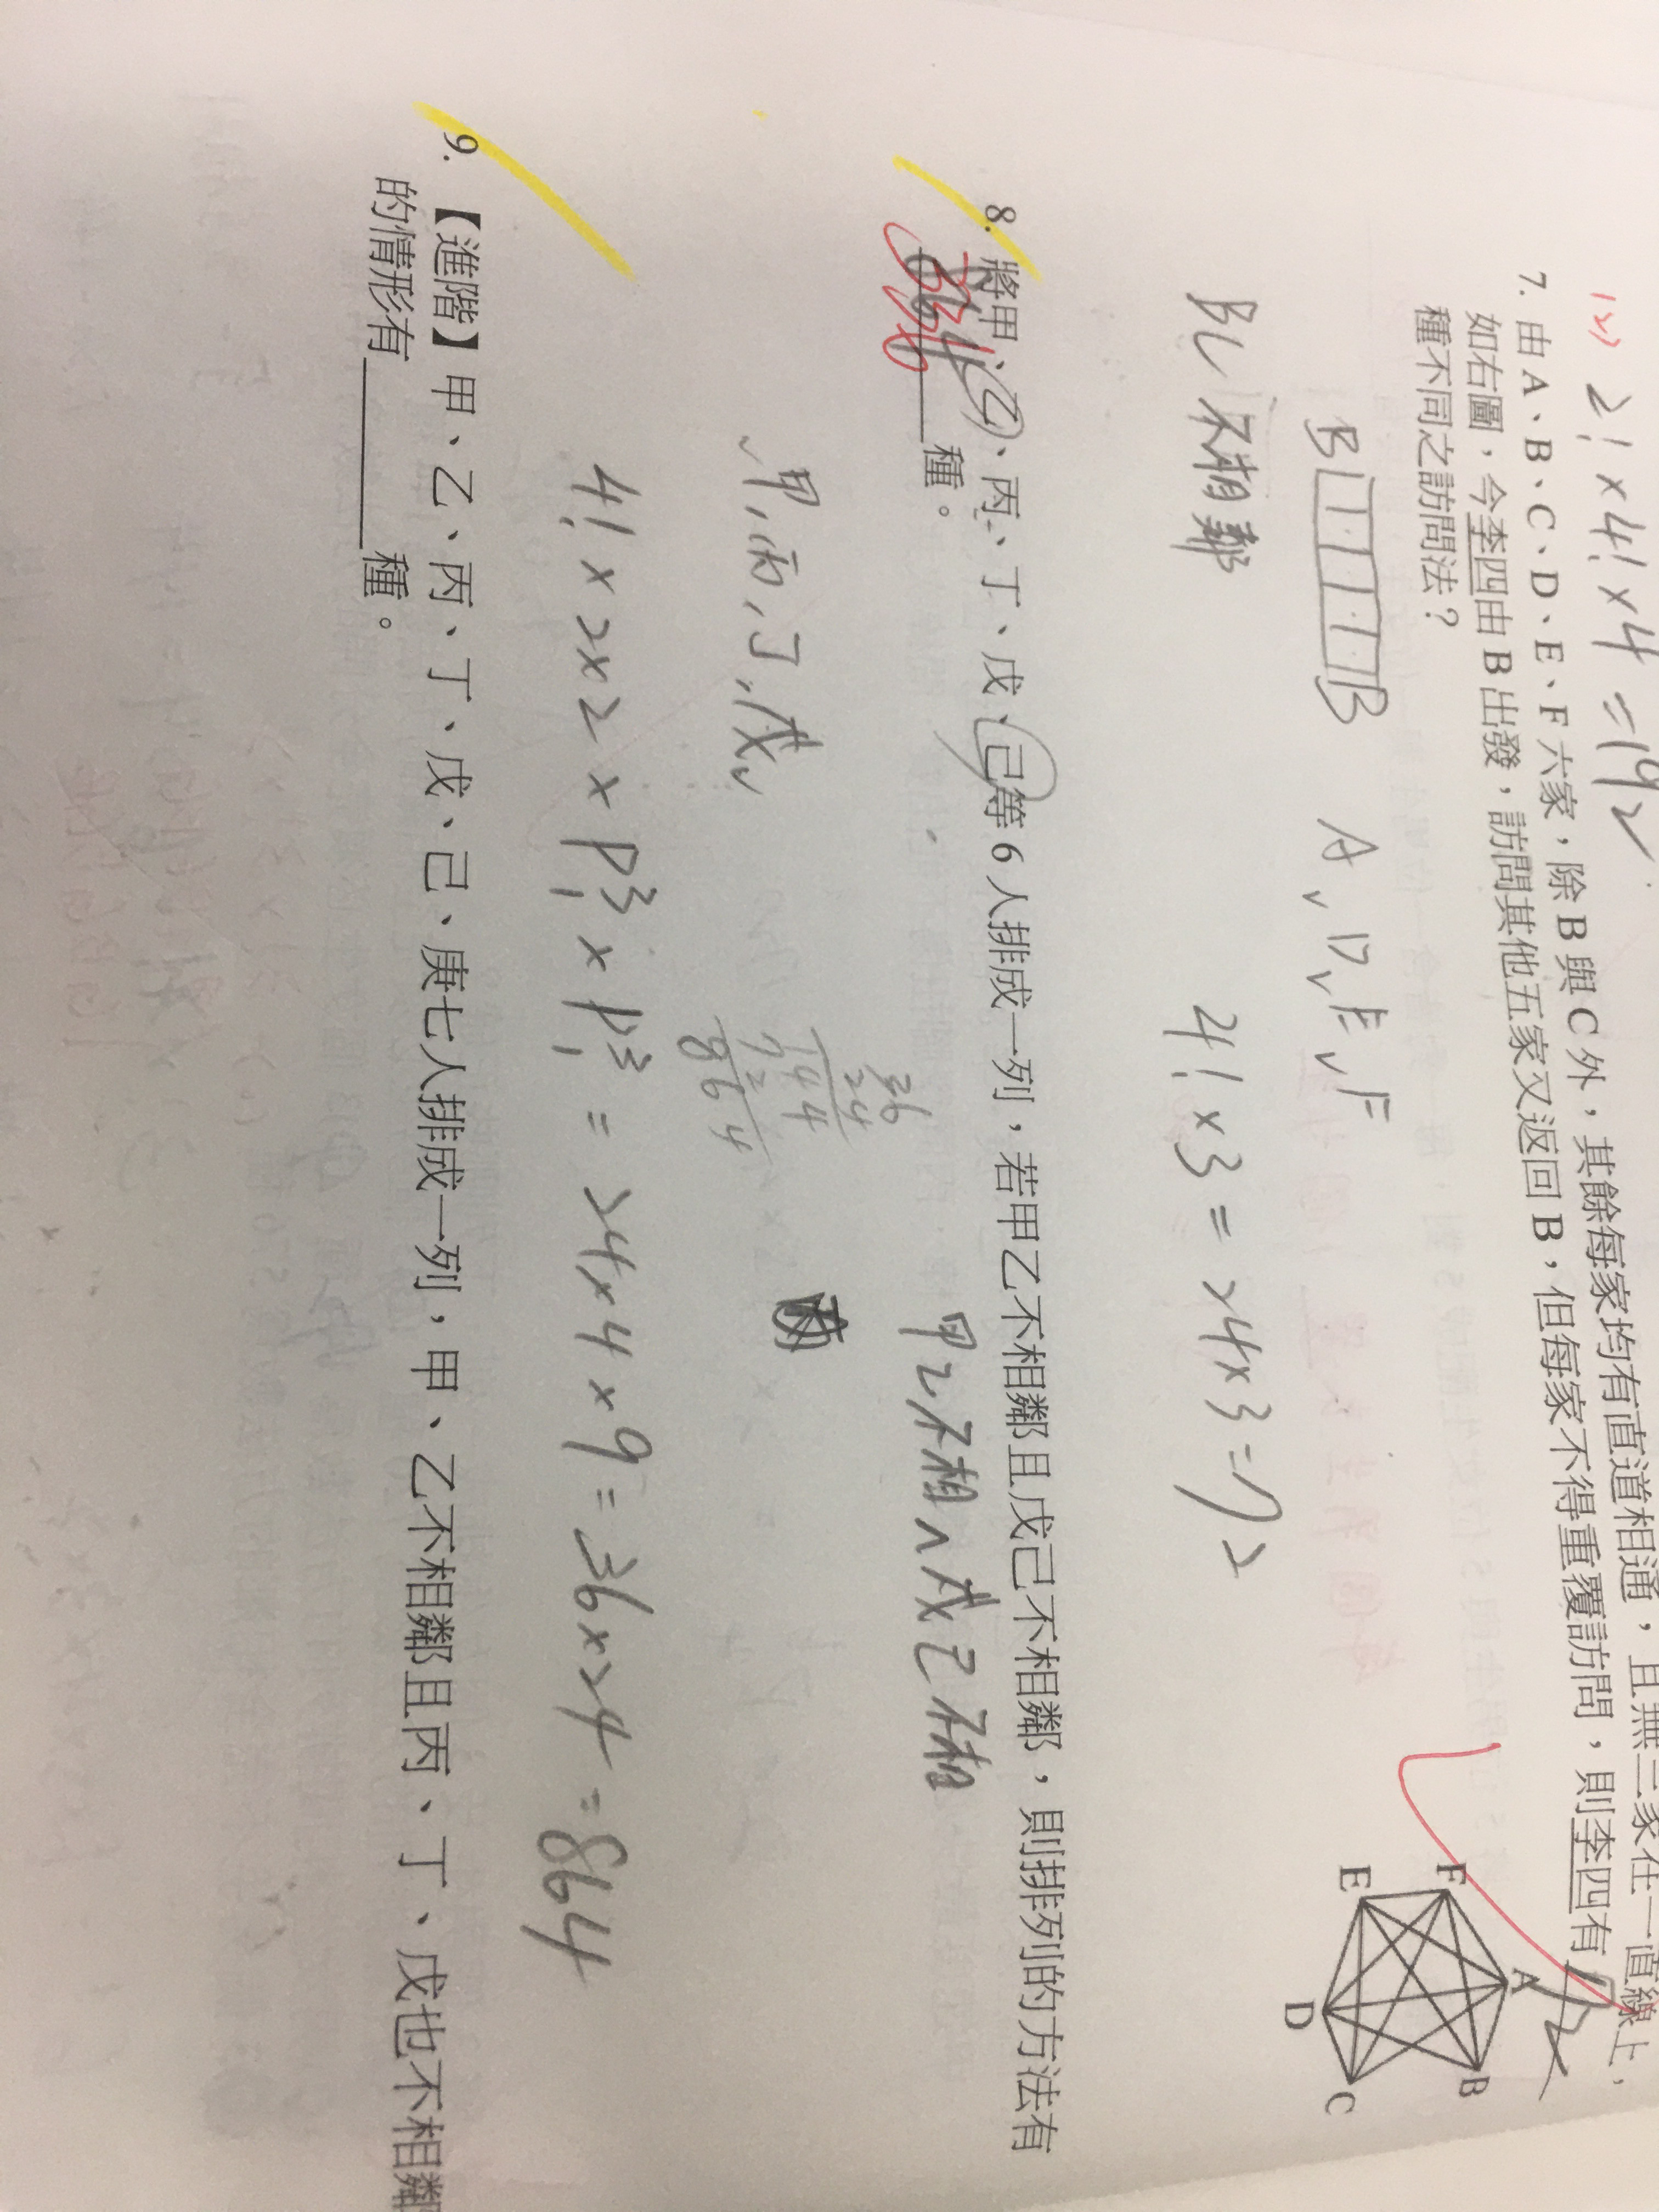 (2) 2! × 4! × 4 = 192
7. 由 A、B、C、D、E、F 六家,除 B 與 C 外,其餘每家均有直道相通,且無三家在一直線上,
如右圖,今李四由 B 出發,訪問其他五家又返回 B,但每家不得重覆訪問,則李四有 72
種不同之訪問法?
F
A
E
B
D
C
B B A, D, E, F
BC 不相鄰 4! × 3 = 24 × 3 = 72
8. 將甲、乙、丙、丁、戊、己等 6 人排成一列,若甲乙不相鄰且戊己不相鄰,則排列的方法有
種。
甲乙不相 ∩ 戊己不相
甲, 丙, 丁, 戊
36
24
144
72
864
4! × 2 × 2 × P³₁ × P³₁ = 24 × 4 × 9 = 36 × 24 = 864
9. 【進階】甲、乙、丙、丁、戊、己、庚七人排成一列,甲、乙不相鄰且丙、丁、戊也不相鄰
的情形有______種。